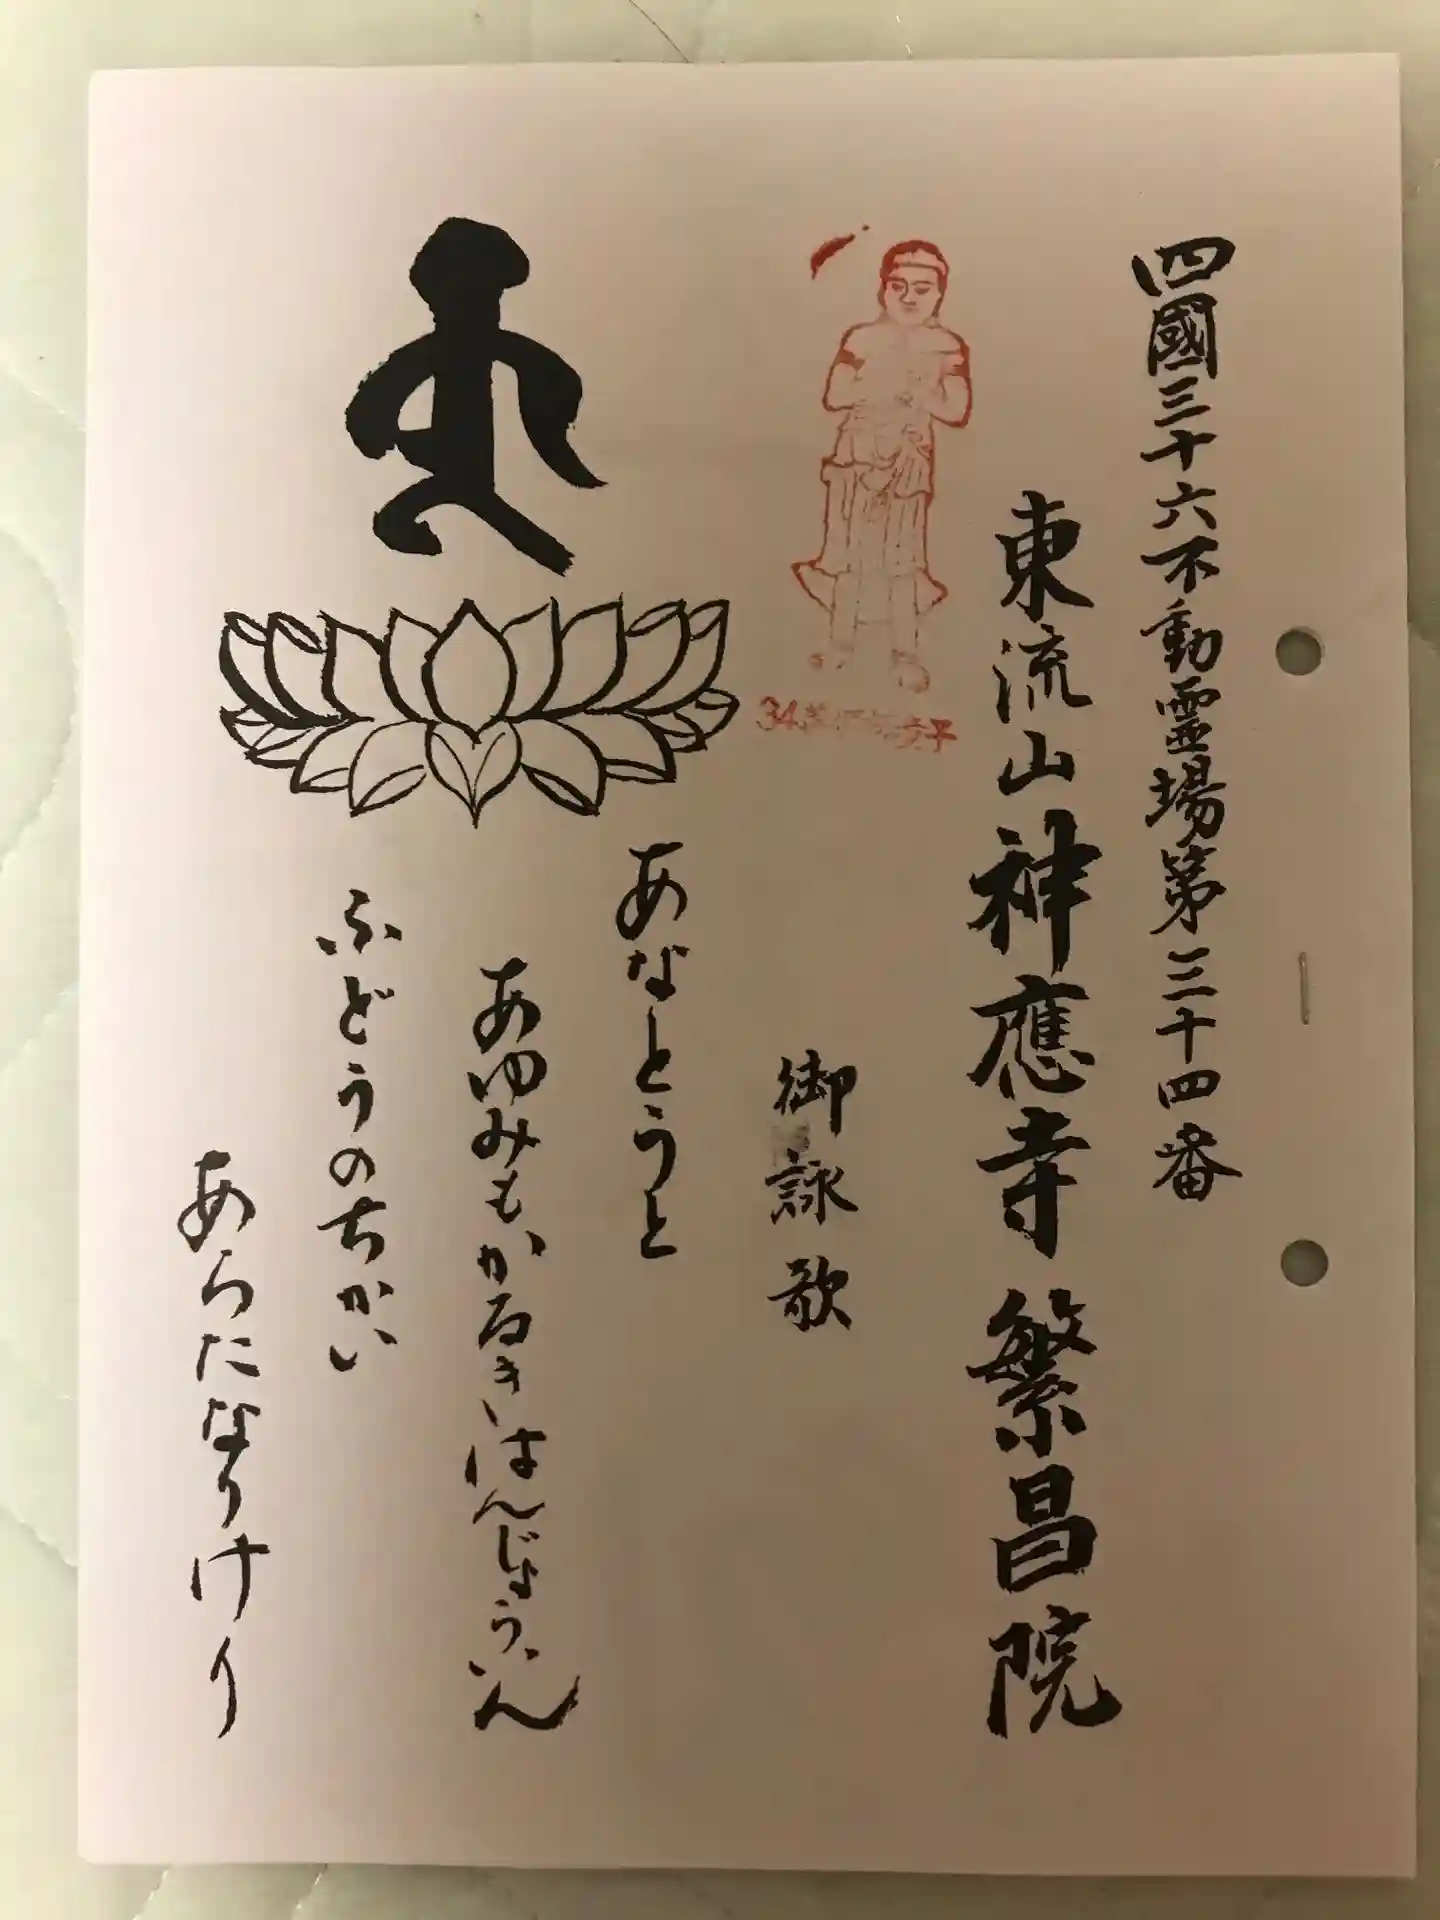 四國三十六不動霊場第三十四番
東流山神應寺繁昌院
御詠歌
あなとうと
あゆみもかるきはんじょういん
ふどうのちかい
あらたなりけり
34.